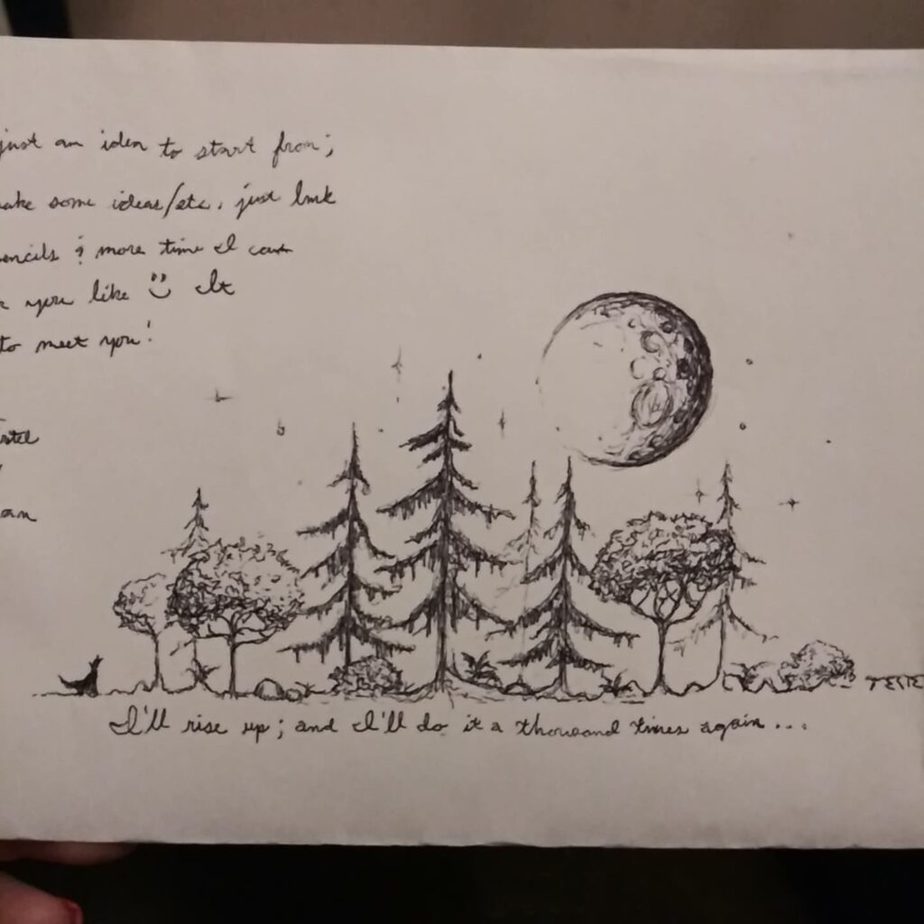 just an idea to start from;
make some ideas/etc. just lmk
pencils & more time I can
you like :) It
to meet you!
I'll rise up; and I'll do it a thousand times again...